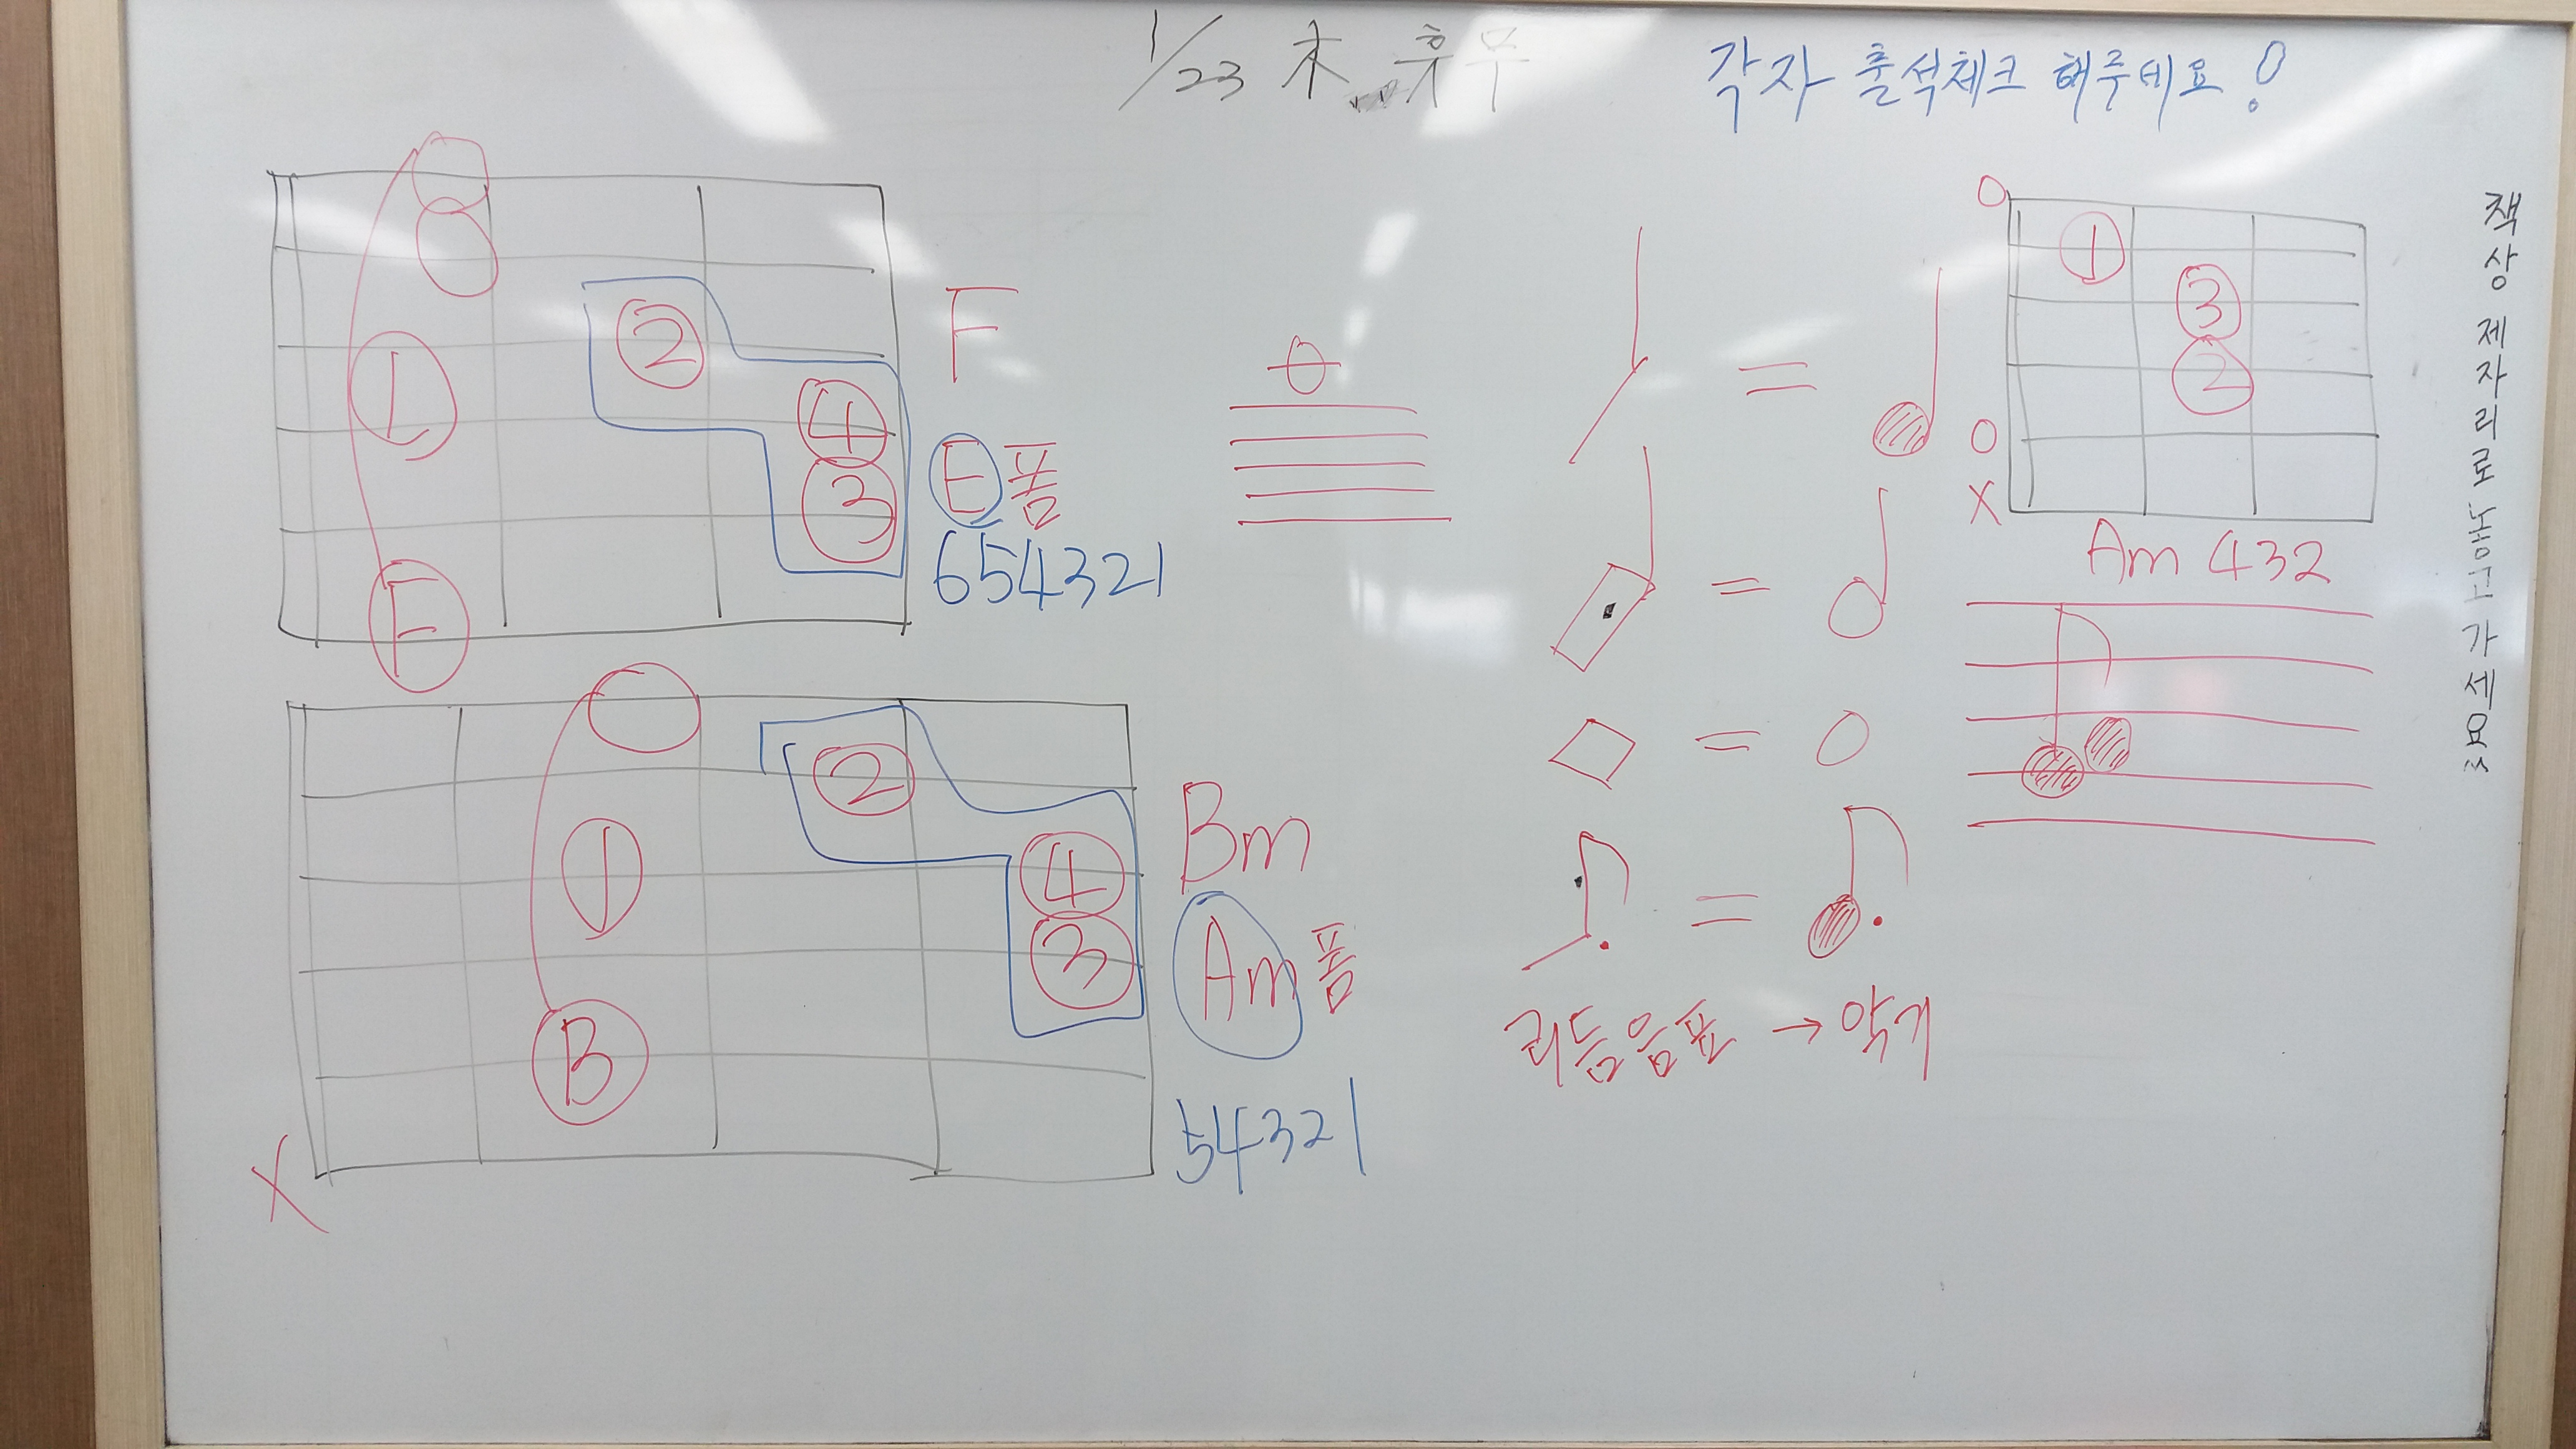 1/23 木 휴무
각자 출석체크 해주세요!
1
2
4
3
F
F
E폼
654321
2
1
4
3
B
X
Bm
Am폼
54321
=
=
=
=
리듬음표 → 악기
O
1
3
2
O
X
Am 432
책상 제자리로 놓고 가세요